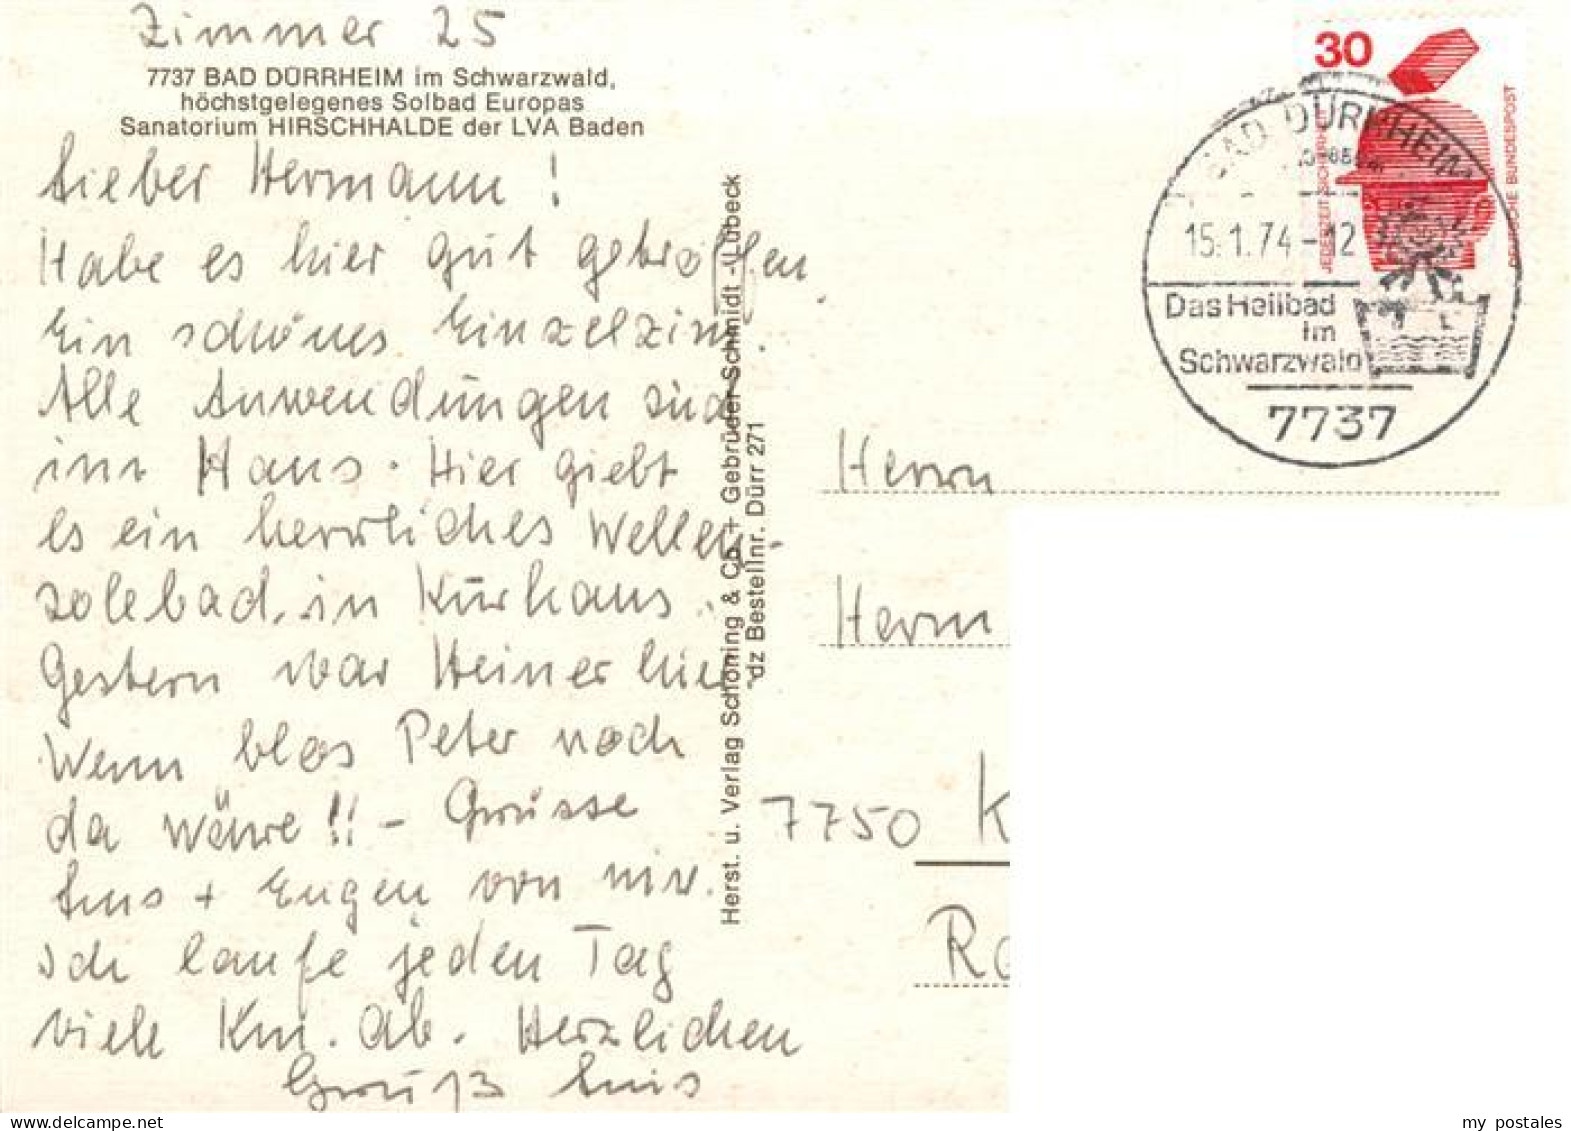 Zimmer 25
7737 BAD DÜRRHEIM im Schwarzwald,
höchstgelegenes Solbad Europas
Sanatorium HIRSCHHALDE der LVA Baden
Lieber Hermann!
Habe es hier gut getroffen.
Ein schönes Einzelzim.
Alle Anwendungen sind
im Haus. Hier giebt
es ein herrliches Wellen-
solebad, in Kurhaus.
Gestern war Heiner hier.
Wenn blos Peter noch
da wäre!! - Grüsse
+ Eugen von mir.
Ich laufe jeden Tag
viele Km. ab. Herzlichen
Gruß
Herst. u. Verlag Schöning & Co + Gebrüder Schmidt - Lübeck
dz Bestellnr. Dürr 271
30
DEUTSCHE BUNDESPOST
JEDERZEIT SICHERHEIT
BAD DÜRRHEIM
15.1.74-12
Das Heilbad
im
Schwarzwald
7737
Herrn
Herm
7750 K
Ra
delcampe.net
my_postales